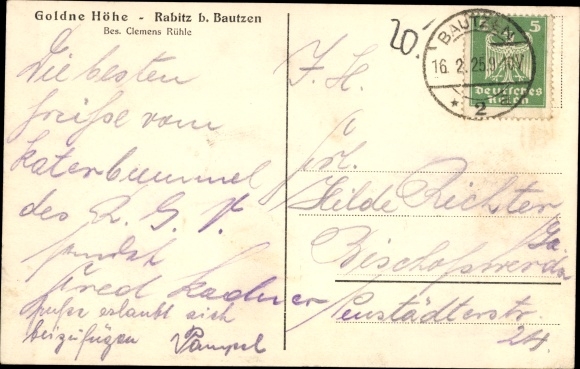 Goldne Höhe - Rabitz b. Bautzen
Bes. Clemens Rühle
Die besten
Grüße vom
Katerbummel
des R. G. V.
sendet
Fred
Grüße erlaubt sich
beizufügen Pampel
20.
BAUTZEN
16. 2. 25. 9-10V
* 2
5
Deutsches
Reich
F. H.
Frl.
Hilde Richter
Bischofswerda
Sa.
Neustädterstr.
24.